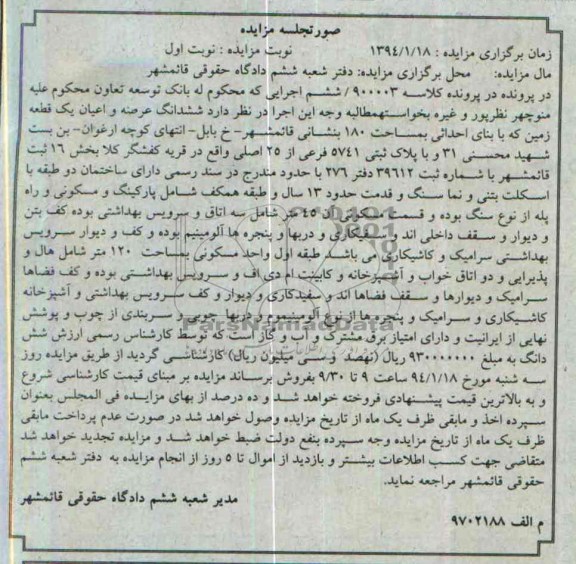 صورتجلسه مزایده
زمان برگزاری مزایده : ۱۳۹٤/۱/۱۸ نوبت مزایده : نوبت اول
مال مزایده: محل برگزاری مزایده: دفتر شعبه ششم دادگاه حقوقی قائمشهر
در پرونده در پرونده کلاسه ۹۰۰۰۰۳ / ششم اجرایی که محکوم له بانک توسعه تعاون محکوم علیه
منوچهر نظرپور و غیره بخواستهمطالبه وجه این اجرا در نظر دارد ششدانگ عرصه و اعیان یک قطعه
زمین که با بنای احداثی بمساحت ۱۸۰ بنشانی قائمشهر- خ بابل- انتهای کوچه ارغوان- بن بست
شهید محسنی ۳۱ و با پلاک ثبتی ۵۷٤۱ فرعی از ۲۵ اصلی واقع در قریه کفشگر کلا بخش ۱۶ ثبت
قائمشهر با شماره ثبت ۳۹۶۱۲ دفتر ۲۷۶ با حدود مندرج در سند رسمی دارای ساختمان دو طبقه با
اسکلت بتنی و نما سنگ و قدمت حدود ۱۳ سال و طبقه همکف شامل پارکینگ و مسکونی و راه
پله از نوع سنگ بوده و قسمت مسکونی آن ٤۵ متر شامل سه اتاق و سرویس بهداشتی بوده کف بتن
و دیوار و سقف داخلی اند و سفیدکاری و دربها و پنجره ها آلومینیم بوده و کف و دیوار سرویس
بهداشتی سرامیک و کاشیکاری می باشد طبقه اول واحد مسکونی بمساحت ۱۲۰ متر شامل هال و
پذیرایی و دو اتاق خواب و آشپزخانه و کابینت ام دی اف و سرویس بهداشتی بوده و کف فضاها
سرامیک و دیوارها و سقف فضاها اند و سفیدکاری و دیوار و کف سرویس بهداشتی و آشپزخانه
کاشیکاری و سرامیک و پنجره ها از نوع آلومینیوم و دربها چوبی و سربندی از چوب و پوشش
نهایی از ایرانیت و دارای امتیاز برق مشترک و آب و گاز است که توسط کارشناس رسمی ارزش شش
دانگ به مبلغ ۹۳۰۰۰۰۰۰۰ ریال (نهصد و سی میلیون ریال) کارشناسی گردید از طریق مزایده روز
سه شنبه مورخ ۹٤/۱/۱۸ ساعت ۹ تا ۹/۳۰ بفروش برساند مزایده بر مبنای قیمت کارشناسی شروع
و به بالاترین قیمت پیشنهادی فروخته خواهد شد و ده درصد از بهای مزایده فی المجلس بعنوان
سپرده اخذ و مابقی ظرف یک ماه از تاریخ مزایده وصول خواهد شد در صورت عدم پرداخت مابقی
ظرف یک ماه از تاریخ مزایده وجه سپرده بنفع دولت ضبط خواهد شد و مزایده تجدید خواهد شد
متقاضی جهت کسب اطلاعات بیشتر و بازدید از اموال تا ۵ روز از انجام مزایده به دفتر شعبه ششم
حقوقی قائمشهر مراجعه نماید.
مدیر شعبه ششم دادگاه حقوقی قائمشهر
م الف ۹۷۰۲۱۸۸
ParsNamadData